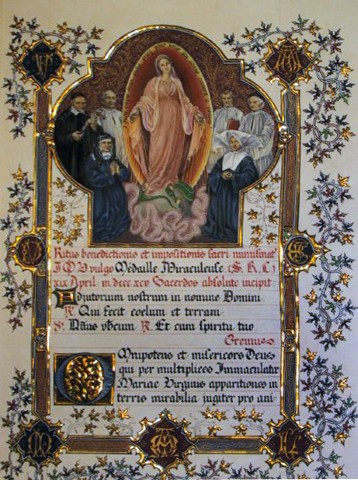 Ritus benedictionis et impositionis sacri numismat
vulgo Médaille Miraculeuse (S. R. C.)
xix April. m dccc xcv Sacerdos absolute incipit:
Adjutorium nostrum in nomine Domini
R. Qui fecit coelum et terram
V. Dñus vobcum R. Et cum spiritu tuo
Oremus
Omnipotens et misericors Deus
qui per multiplices Immaculatae
Mariae Virginis apparitiones in
terris mirabilia jugiter pro ani